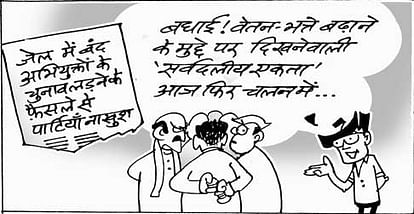 जेल में बंद
अभियुक्तों के
चुनाव लड़ने के
फ़ैसले से
पार्टियाँ नाखुश
बधाई! वेतन-भत्ते बढ़ाने
के मुद्दे पर दिखनेवाली
'सर्वदलीय एकता'
आज फिर चलन में...